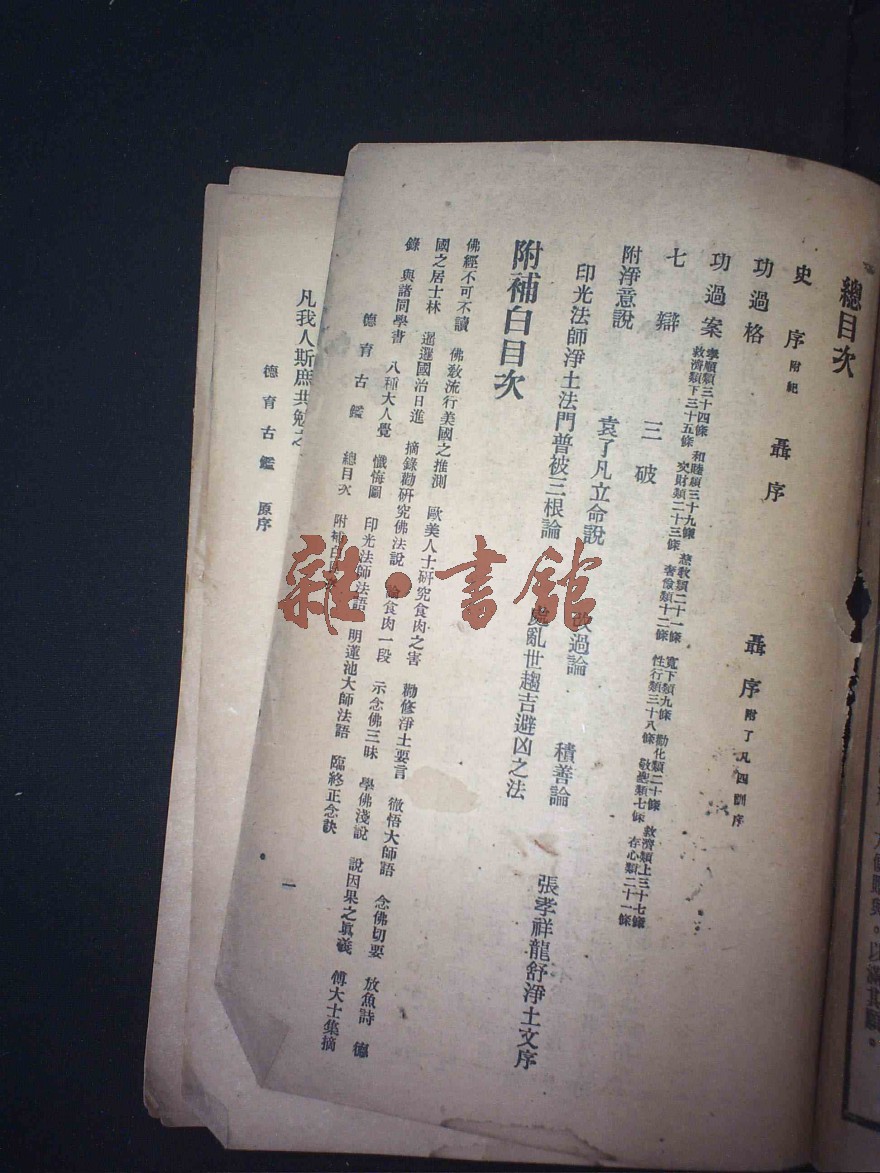 總目次
史序 附紀 聶序 聶序 附了凡四訓序
功過格
功過案 孝順類三十四條 和睦類三十九條 慈教類二十一條 寬下類九條 勸化類二十條 救濟類上三十七條
救濟類下三十五條 交財類二十三條 奢儉類十二條 性行類三十八條 敬聖類七條 存心類二十一條
七辯 三破
附淨意說 袁了凡立命說 改過論 積善論 張孝祥龍舒淨土文序
印光法師淨土法門普被三根論 處亂世趨吉避凶之法
附補白目次
佛經不可不讀 佛教流行美國之推測 歐美人士研究食肉之害 勸修淨土要言 徹悟大師語 念佛切要 放魚詩 德
國之居士林 暹邏國治日進 摘錄勸研究佛法說 食肉一段 示念佛三昧 學佛淺說 說因果之眞義 傅大士集摘
錄 與諸同學書 八種大人覺 懺悔圖 印光法師法語 明蓮池大師法語 臨終正念訣
德育古鑑 總目次 附補白
一
凡我人斯庶共勉之
德育古鑑 原序
雜·書館
。以滿其願。